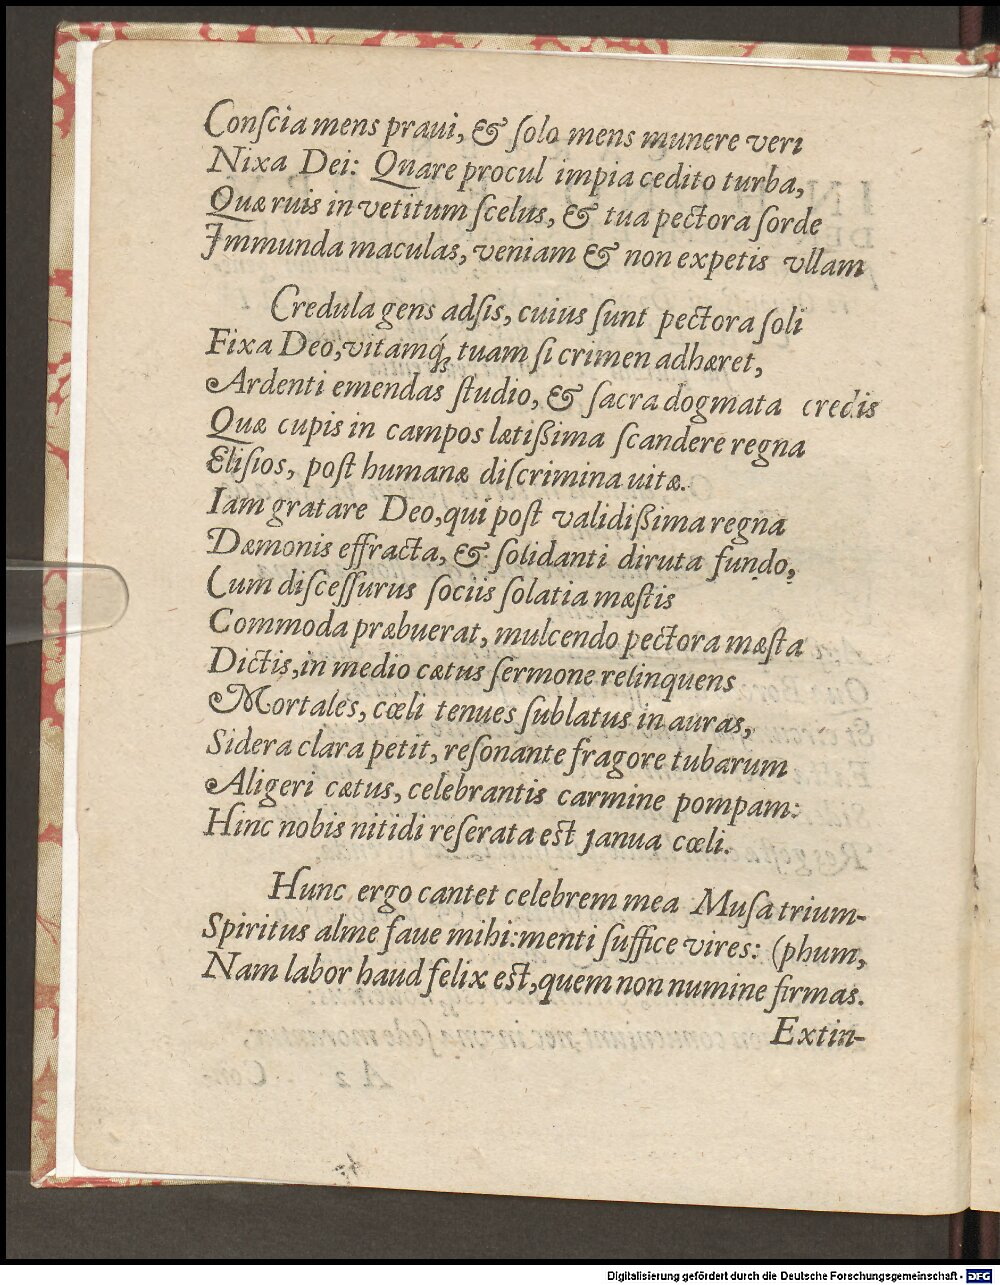 Conſcia mens praui, & ſolo mens munere veri
Nixa Dei: Quare procul impia cedito turba,
Quæ ruis in vetitum ſcelus, & tua pectora ſorde
Immunda maculas, veniam & non expetis vllam
Credula gens adſis, cuius ſunt pectora ſoli
Fixa Deo, vitamq́; tuam ſi crimen adhæret,
Ardenti emendas ſtudio, & ſacra dogmata credis
Quæ cupis in campos lætißima ſcandere regna
Eliſios, poſt humanæ diſcrimina uitæ.
Iam gratare Deo, qui poſt validißima regna
Dæmonis effracta, & ſolidanti diruta fundo,
Cum diſceſſurus ſociis ſolatia mæſtis
Commoda præbuerat, mulcendo pectora mæſta
Dictis, in medio cætus ſermone relinquens
Mortales, cœli tenues ſublatus in auras,
Sidera clara petit, reſonante fragore tubarum
Aligeri cætus, celebrantis carmine pompam:
Hinc nobis nitidi reſerata est janua cœli.
Hunc ergo cantet celebrem mea Muſa trium-
Spiritus alme faue mihi: menti ſuffice vires: (phum,
Nam labor haud felix est, quem non numine firmas.
Extin-
Digitalisierung gefördert durch die Deutsche Forschungsgemeinschaft - DFG